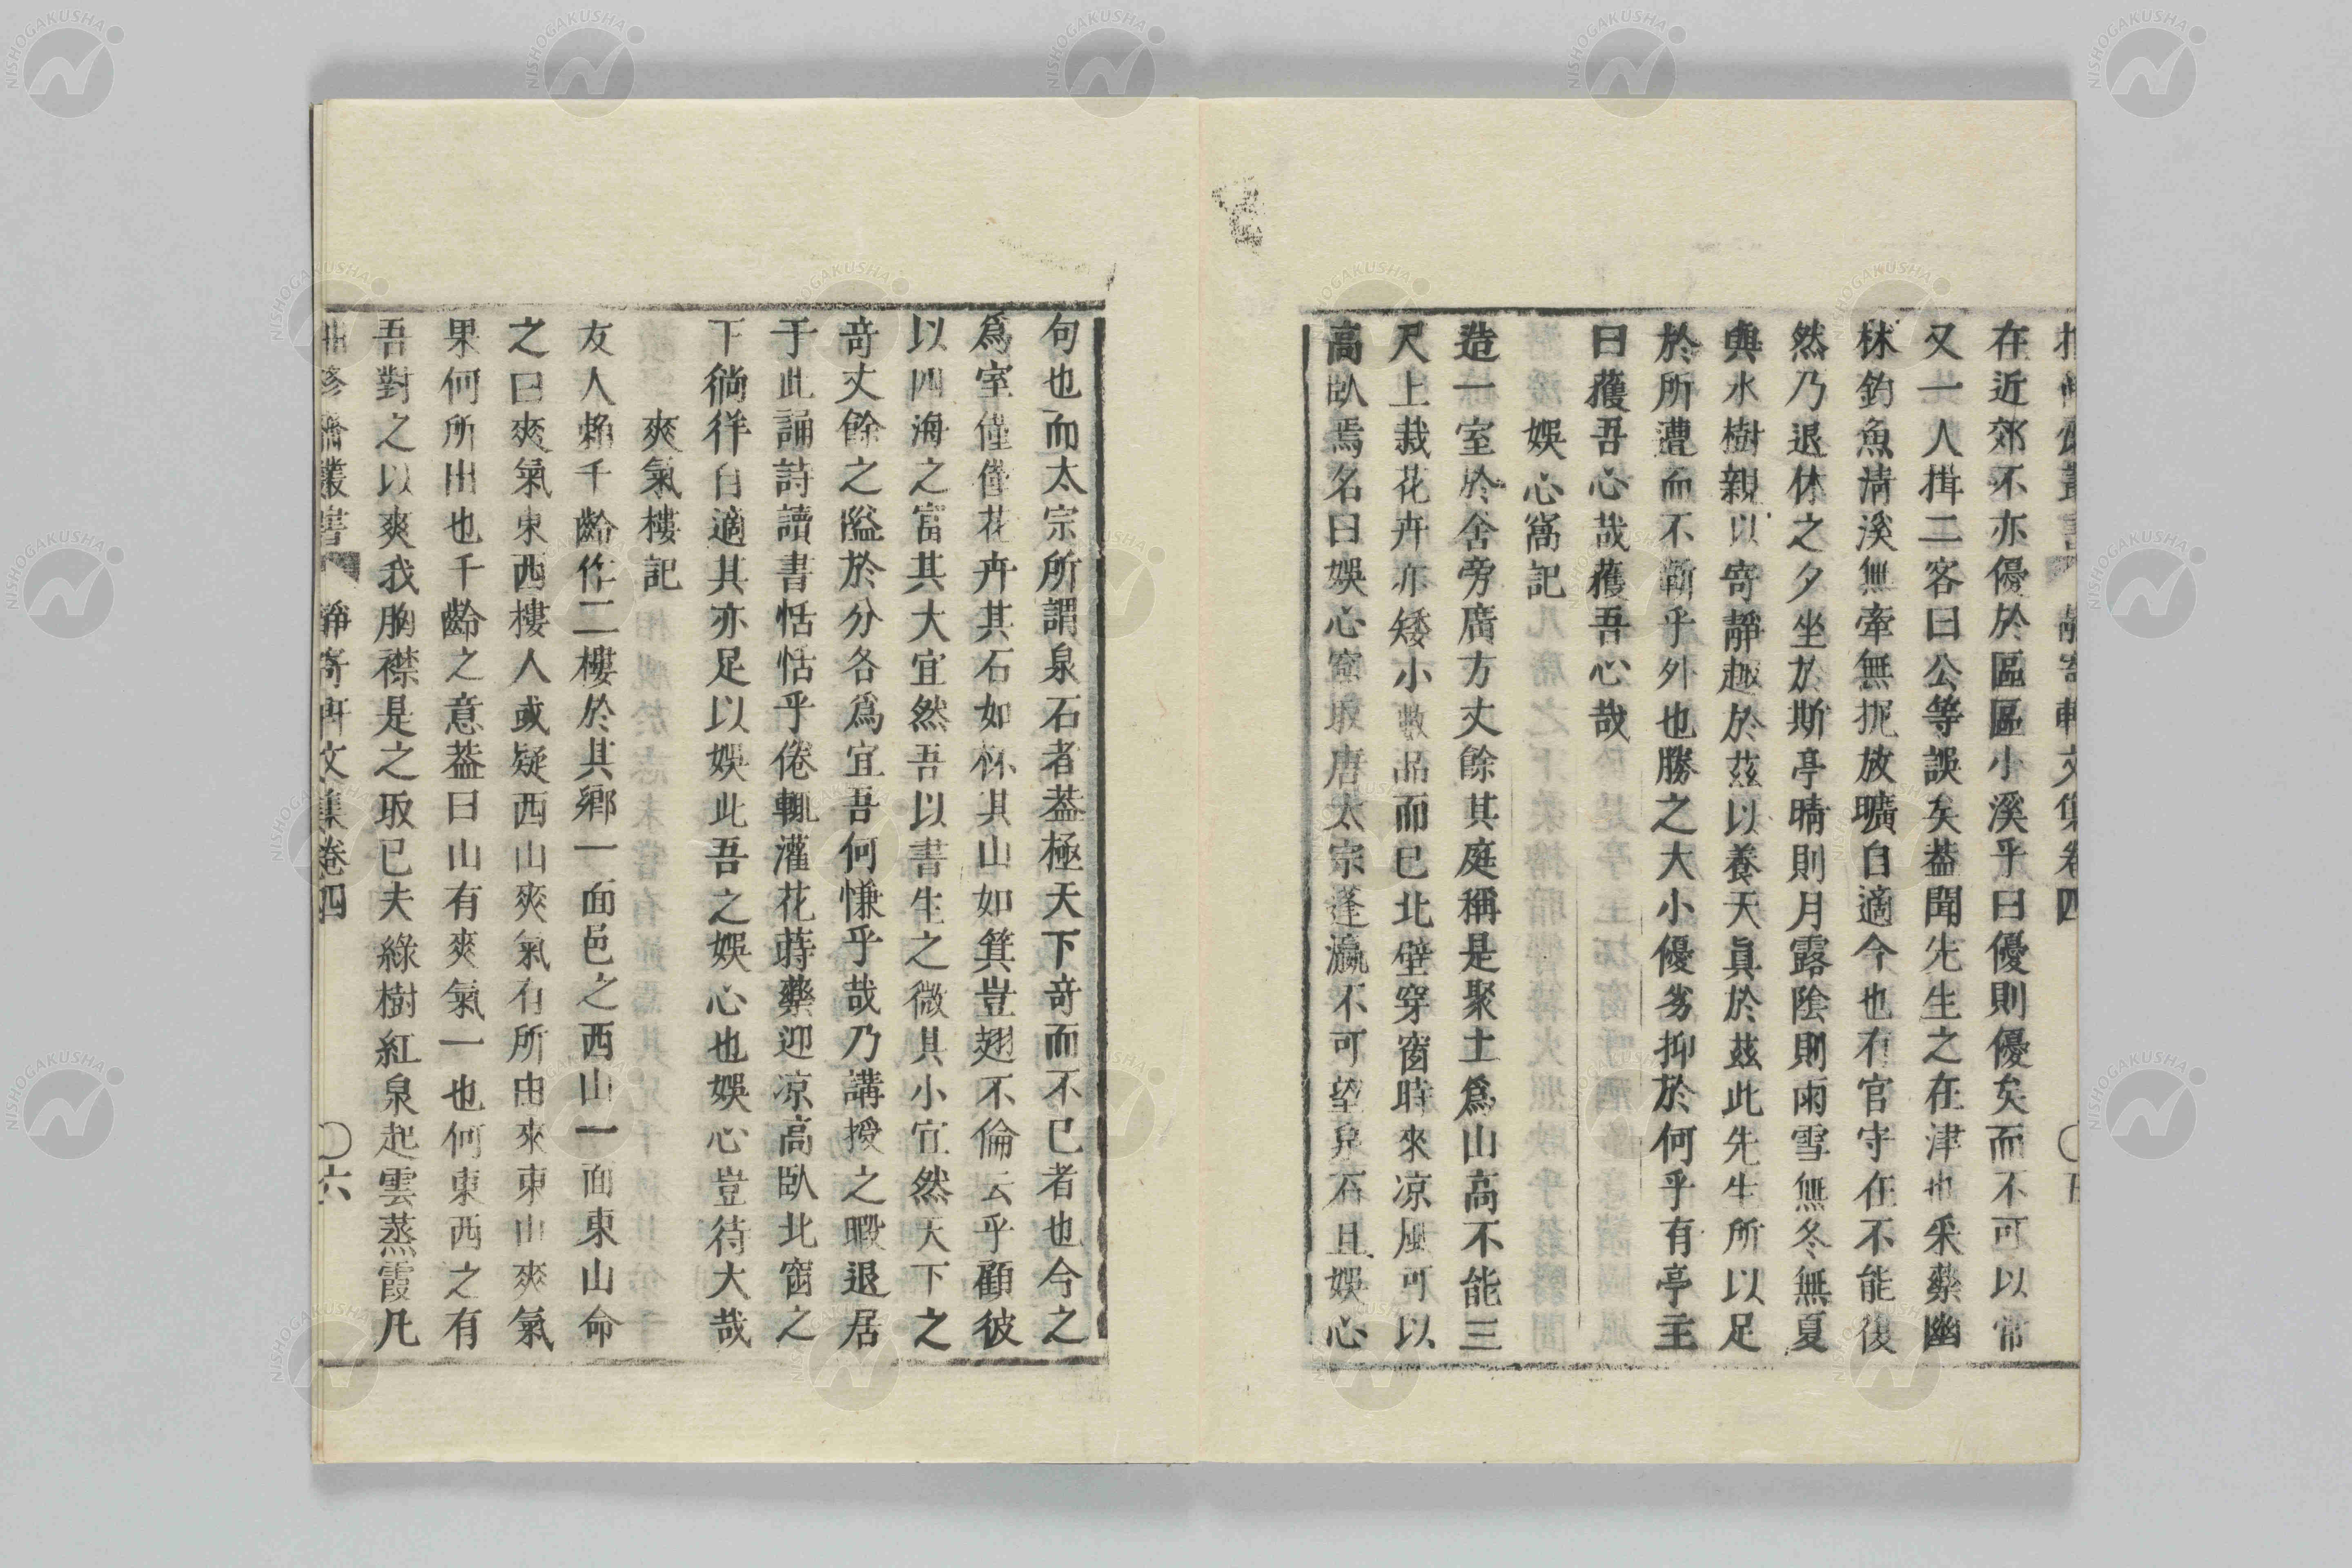 在近郊不亦優於區區小溪乎曰優則優矣而不可以常
又一人揖二客曰公等誤矣葢聞先生之在津也采藥幽
林釣魚清溪無牽無抳放曠自適今也有官守在不能復
然乃退休之夕坐於斯亭晴則月露陰則雨雪無冬無夏
與水樹親以寄靜趣於茲以養天眞於茲此先生所以足
於所遭而不蘄乎外也勝之大小優劣抑於何乎有亭主
曰蕿吾心哉蕿吾心哉
娛心窩記
造一室於舍旁廣方丈餘其庭稱是聚土爲山高不能三
尺上栽花卉亦矮小數品而已北壁穿窗時來凉風可以
高臥焉名曰娛心窩取唐太宗蓬瀛不可望泉石且娛心
句也而太宗所謂泉石者葢極天下竒而不已者也今之
爲室僅僅花卉其石如杯其山如箕豈翅不倫云乎顧彼
以四海之富其大宜然吾以書生之微其小宜然天下之
竒丈餘之隘於分各爲宜吾何慊乎哉乃講授之暇退居
于此誦詩讀書恬恬乎倦輒灌花蒔藥迎凉高臥北窗之
下徜徉自適其亦足以娛此吾之娛心也娛心豈待大哉
爽氣樓記
友人賴千齡作二樓於其鄉一面邑之西山一面東山命
之曰爽氣東西樓人或疑西山爽氣有所由來東山爽氣
果何所出也千齡之意葢曰山有爽氣一也何東西之有
吾對之以爽我胸襟是之取已夫綠樹紅泉起雲蒸霞凡
叢書 靜寄軒文集卷四 〇六